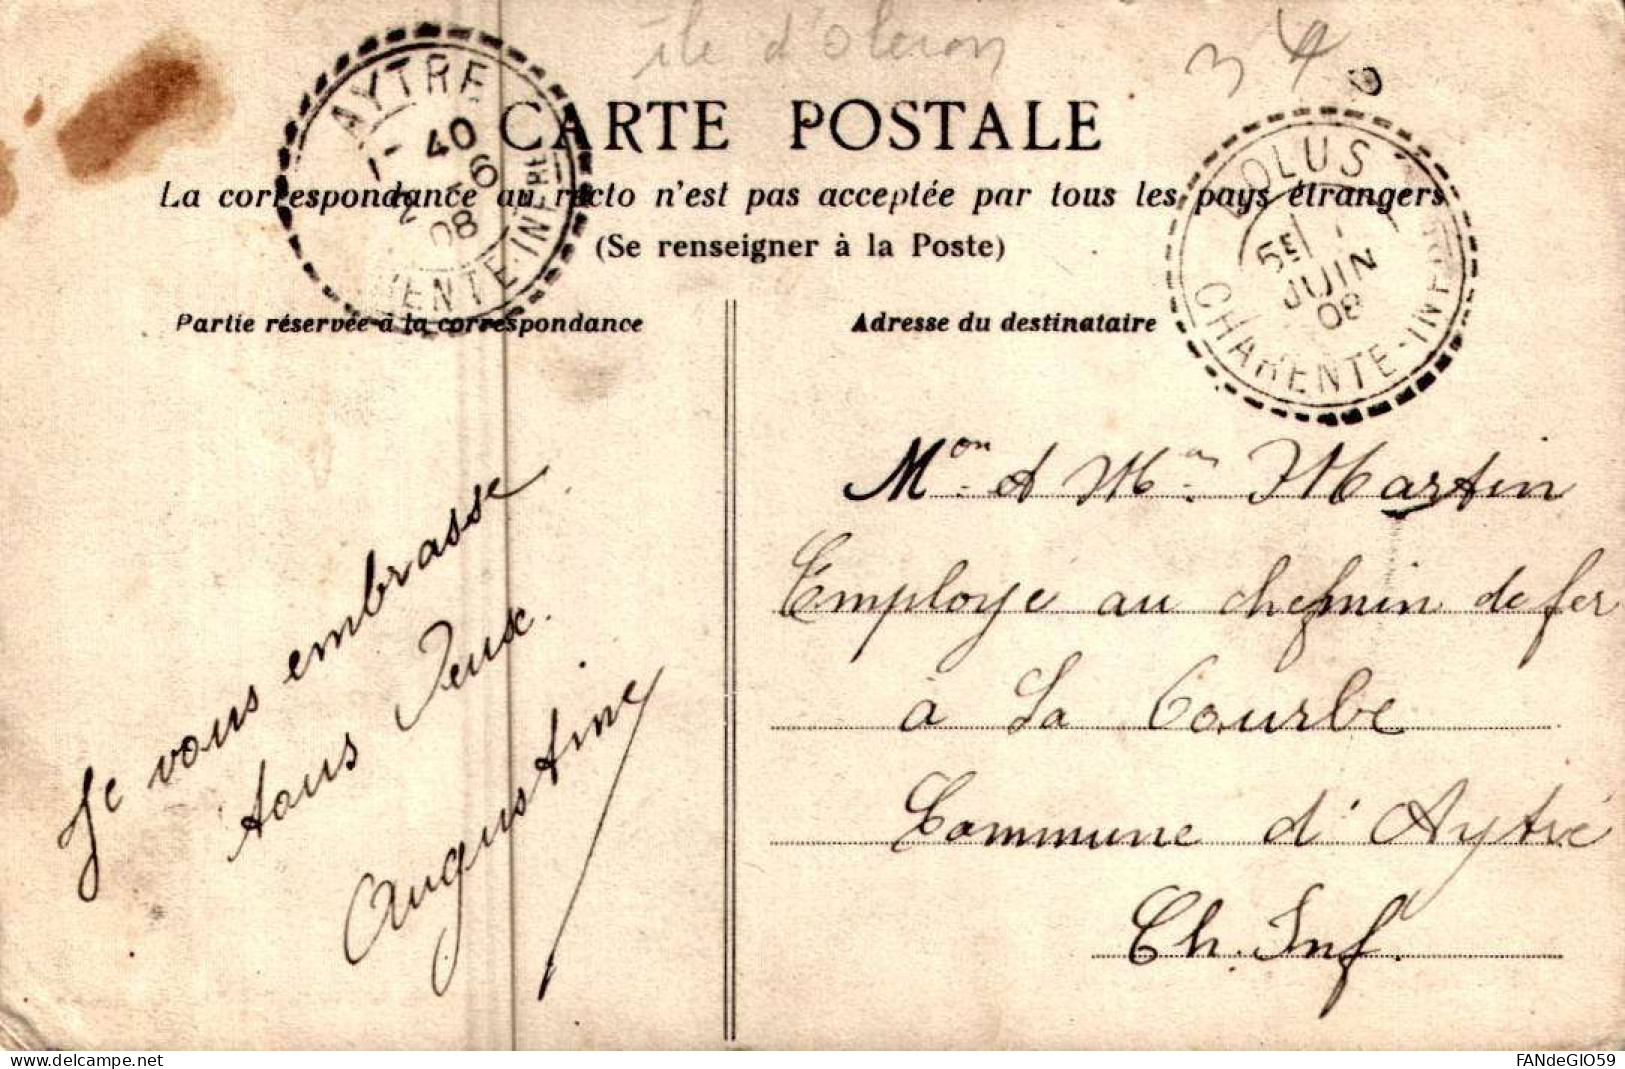 île d'Oleron
34
AYTRE
1- 40
2 -6
08
ENTE-INFRE
CARTE POSTALE
La correspondance au recto n'est pas acceptée par tous les pays étrangers
(Se renseigner à la Poste)
DOLUS
5E
JUIN
08
CHARENTE-INFRE
Partie réservée à la correspondance
Je vous embrasse
tous deux.
Augustine
Adresse du destinataire
Mon et Mm Martin
Employé au chemin de fer
à La Courbe
Commune d'Aytré
Ch. Inf.
https://www.delcampe.net
FANdeGIO59